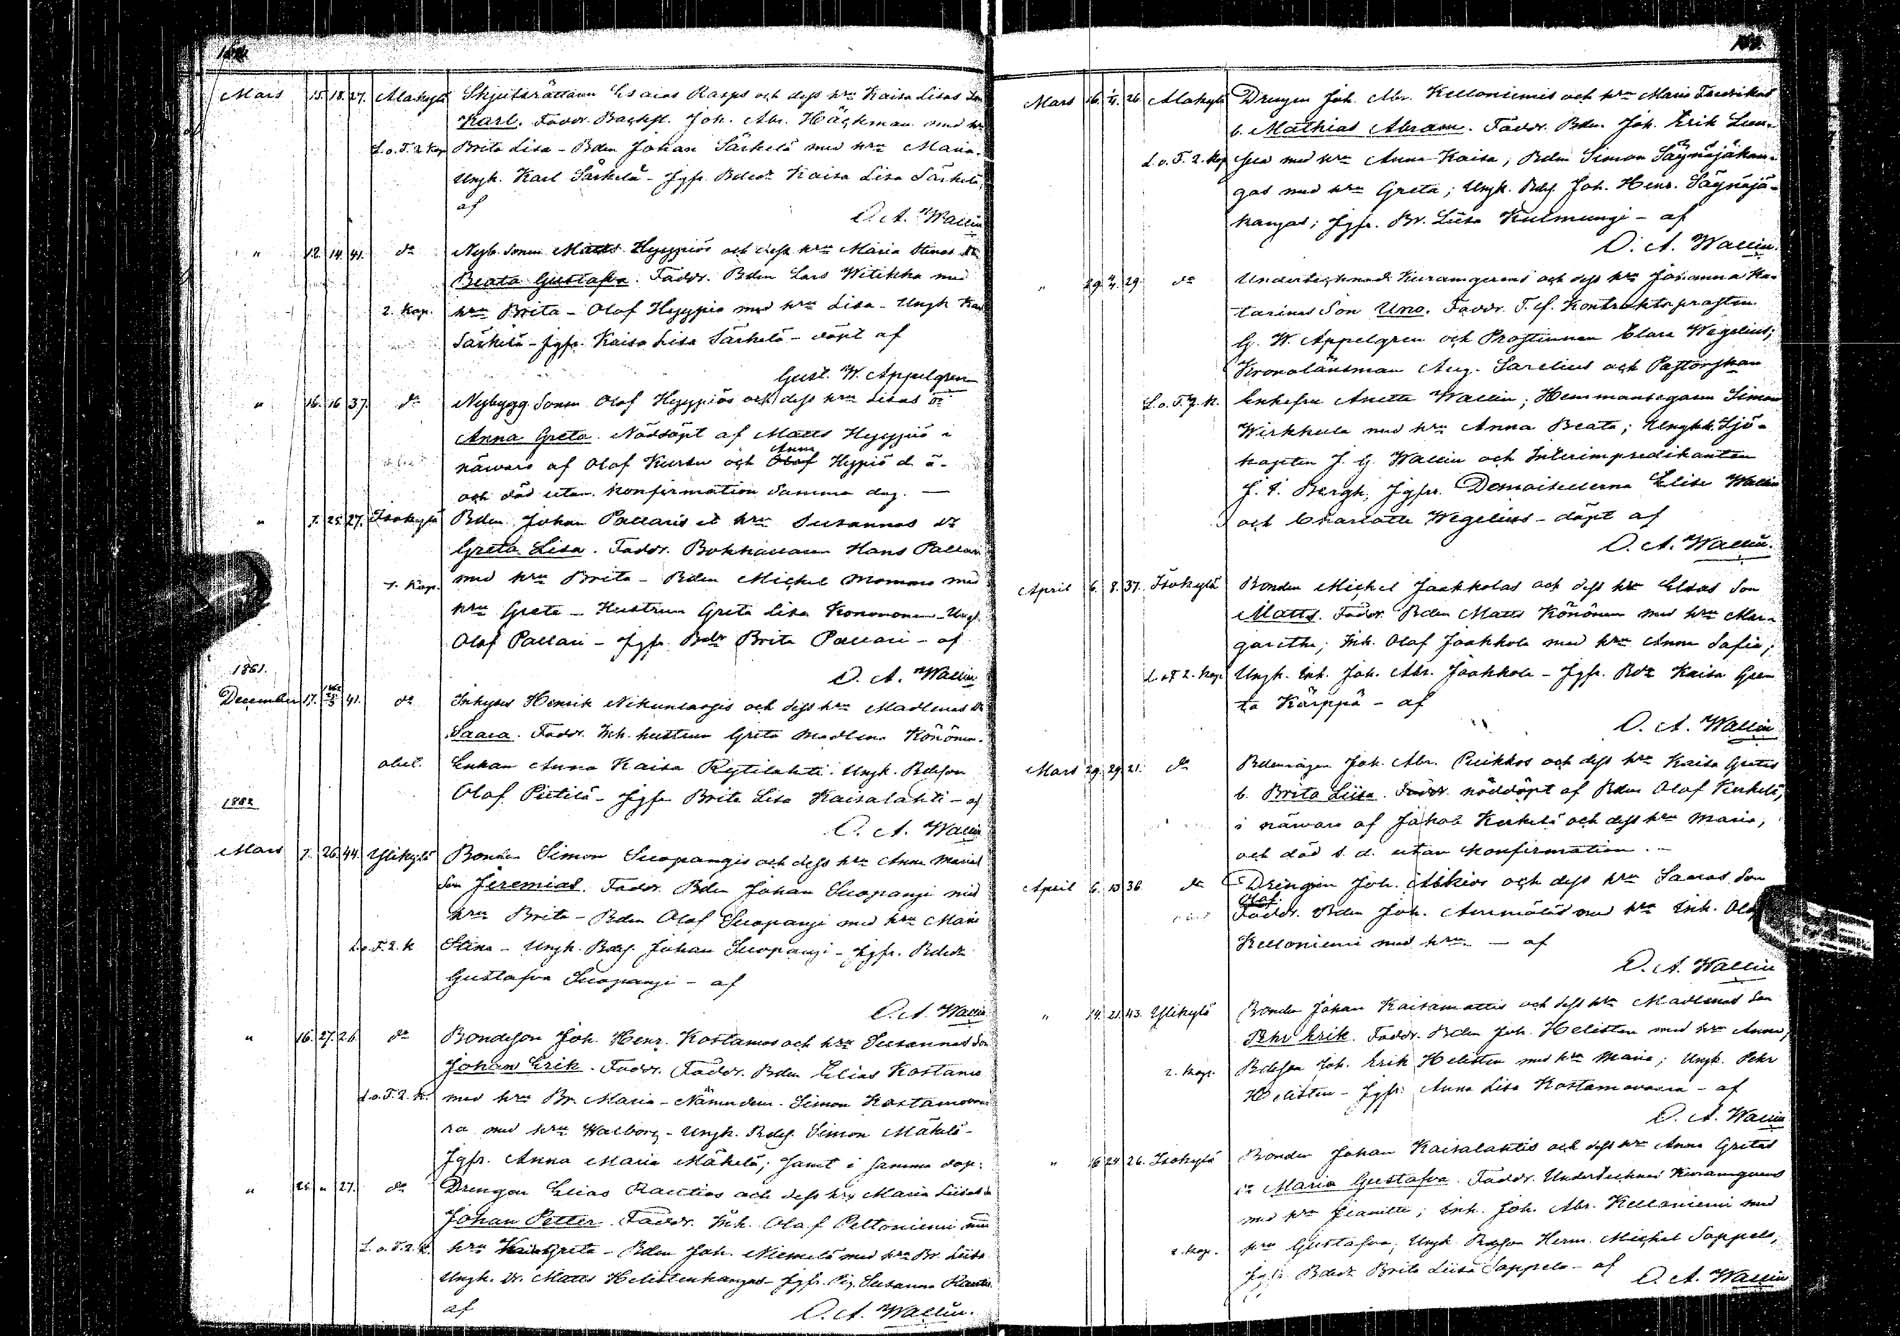 Mars 15. 18. 27. Alakylä Skjutsrättaren Esaias Rasps och dess hru Kaisa Lisas Son
Karl. Faddr. Joh. Abr. Häggman med hr
L. o. T. 2 Kap Brita Lisa - Bden Johan Särkelä med hru Maria.
Ungk. Karl Särkelä - Jgfr. Bdedr Kaisa Lisa Särkelä,
af
O. A. Wallin
" 12. 14. 41. do Nyb. Sonen Matts Hyyppiös och dess hru Maria Stinas dr
Beata Gustafva. Faddr. Bden Lars Witikka med
2. Kap. hru Brita - Olof Hyypiö med hru Lisa - Ungk Karl
Särkilä - Jgfr. Kaisa Lisa Särkelä - döpt af
Gust. W. Appelgren
" 16. 16. 37. do Nybygg. Sonen Olof Hyyppiös och dess hru Lisas dr
Anna Greta. Nöddöpt af Matts Hyyppiö i
närvaro af Olof Kurtu och Anna Hyppiö d. ä.
och död utan konfirmation samma dag. —
" 7. 25. 27. Isokylä Bden Johan Pallaris et hru Susannas dr
Greta Lisa. Faddr. Bokhållaren Hans Pallari
2. Kap. med hru Brita - Bden Michel Mommo med
hru Greta - Hustrun Greta Lisa Kononen - Ungk.
Olof Pallari - Jgfr. Bdedr Brita Pallari - af
O. A. Wallin
1861.
December 17. 1862 41. do Inhyses Henrik Nikunlassis och dess hru Madlenas dr
Saara. Faddr. Inh. hustrun Greta Madlena Könönen.
obet. Enkan Anna Kaisa Kytilahti. Ungk. Bdeson
Olof Pietilä - Jgfr Brita Lisa Kaisalahti - af
O. A. Wallin
1862
Mars 7. 26. 44. Ylikylä Bonden Simon Suopangis och dess hru Anna Marias
Son Jeremias. Faddr. Bden Johan Suopangi med
hru Brita - Bden Olof Suopangi med hru Maria
L. o. T. 2. K Stina - Ungk. Bdes. Johan Suopangi - Jgfr. Bdedr
Gustafva Suopangi - af
O. A. Wallin
" 16. 27. 26. do Bondeson Joh. Henr. Kostamos och hru Susannas Son
Johan Erik. Faddr. Faddr. Bden Elias Kostamo
L. o. T. 2. K. med hru Br. Maria - Nämndem. Simon Kostamovaa
ra med hru Walborg - Ungk. Bdes. Simon Mäkelä -
Jgfr. Anna Maria Mäkelä; samt i samma dop:
" 25. " 27. do Drengen Elias Rautios och dess hru Maria Liisas Son
Johan Petter. Faddr. Inh. Olof Peltoniemi med
L. o. T. 2. K. hru Greta - Bden Joh. Niemelä med hru Br. Liisa
Ungk. Dr. Matts Helistenkangas - Jgfr. Pig. Susanna Rautio
af
O. A. Wallin.
Mars 16. 26 Alakylä Drengen Joh. Abr. Kelloniemis och hru Maria Fredrikas
b. Mathias Abram. Faddr. Bden Joh. Erik
L. o. T. 2. Kap med hru Anna Kaisa, Bden Simon Säynäjäkan-
gas med hru Greta; Ungk. Bdes. Joh. Henr. Säynäjä-
kangas; Jgfr. Br. Liisa Kulmungi - af
O. A. Wallin.
" 29. 29. do Undertecknads Kuramgerens och dess hru Johanna Ka-
tarinas Son Uno. Faddr. T. f. Kontraktsprosten
G. W. Appelgren och Prostinnan Clara Wegelius;
Kronolänsman Aug. Sarelius och Pastorskan
L. o. T. 7. K. Enkefru Anette Wallin; Hemmansegaren Simon
Wirkkula med hru Anna Beata; Ungk. Sjö-
kapten J. G. Wallin och Interimpredikanten
J. F. Bergh, Jgfrr. Demoisellerna Elise Wallin
och Charlotte Wegelius - döpt af
O. A. Wallin.
April 6. 8. 37. Isokylä Bonden Michel Jaakkolas och dess hru Elsas Son
Matts. Faddr. Bden Matts Könönen med hru Mar-
garetha; Inh. Olof Jaakkola med hru Anna Safia;
L. o. T. 2. Kap. Ungk. Inh. Joh. Abr. Jaakkola - Jgfr. Bdr Kaisa Gre-
ta Karppä - af
O. A. Wallin
Mars 29. 29. 21. do Bdemågen Joh. Abr. Peikkos och dess hru Kaisa Gretas
b. Brita Liisa. Faddr. nöddöpt af Bden Olof Kerkelä,
i närvaro af Jakob Kerkelä och dess hru Maria,
och död s. d. utan konfirmation. -
April 6. 13 36 do Drengen Joh. Alkios och dess hru Saaras Son
Olof.
Faddr. Bden Joh. med hru Inh. Olof
Kelloniemi med hru — af
O. A. Wallin
" 14. 21. 43. Ylikylä Bonden Johan Kaisamattis och dess hru Madlenas Son
Pehr Erik. Faddr. Bden Joh. Helisten med hru Anna,
2. Kap. Bdeson Joh. Erik Helisten med hru Maria; Ungk. Pehr
Helisten - Jgfr. Anna Lisa Kostamovaara - af
O. A. Wallin
" 16 24 26. Isokylä Bonden Johan Kaisalahtis och dess hru Anna Gretas
dr Maria Gustafva. Faddr. Undertecknad Kuramgerens
med hru Jeanette; Inh. Joh. Abr. Kelloniemi med
2. Kap. hru Gustafva; Ungk. Bdeson Herm. Michel Sappela,
Jgfr. Bdedr Brita Liisa Sappela - af O. A. Wallin